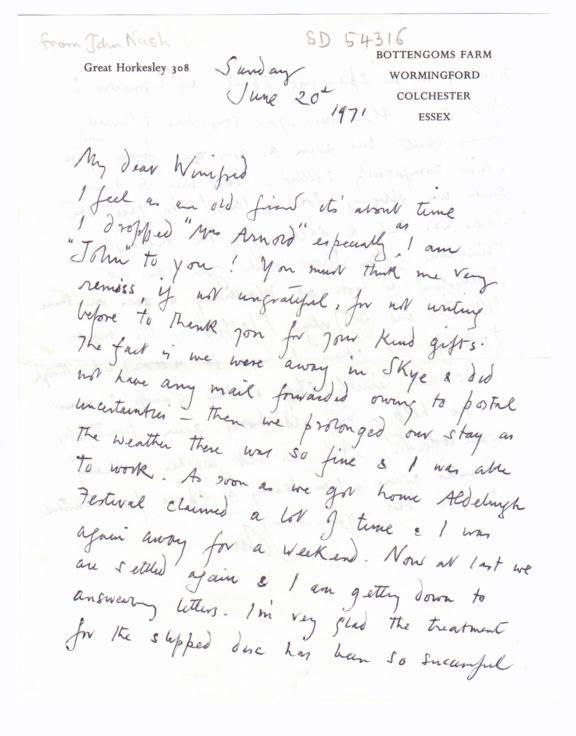 from John Nash
SD 54316
BOTTENGOMS FARM
Great Horkesley 308
WORMINGFORD
COLCHESTER
ESSEX
Sunday
June 20th
1971
My dear Winifred
I feel as an old friend it's about time
I dropped "Mrs Arnold" especially as I am
"John" to you! You must think me very
remiss if not ungrateful, for not writing
before to thank you for your kind gifts.
The fact is we were away in Skye & did
not have any mail forwarded owing to postal
uncertainties – then we prolonged our stay as
the weather there was so fine & I was able
to work. As soon as we got home Aldeburgh
Festival claimed a lot of time & I was
again away for a weekend. Now at last we
are settled again & I am getting down to
answering letters. I'm very glad the treatment
for the slipped disc has been so successful